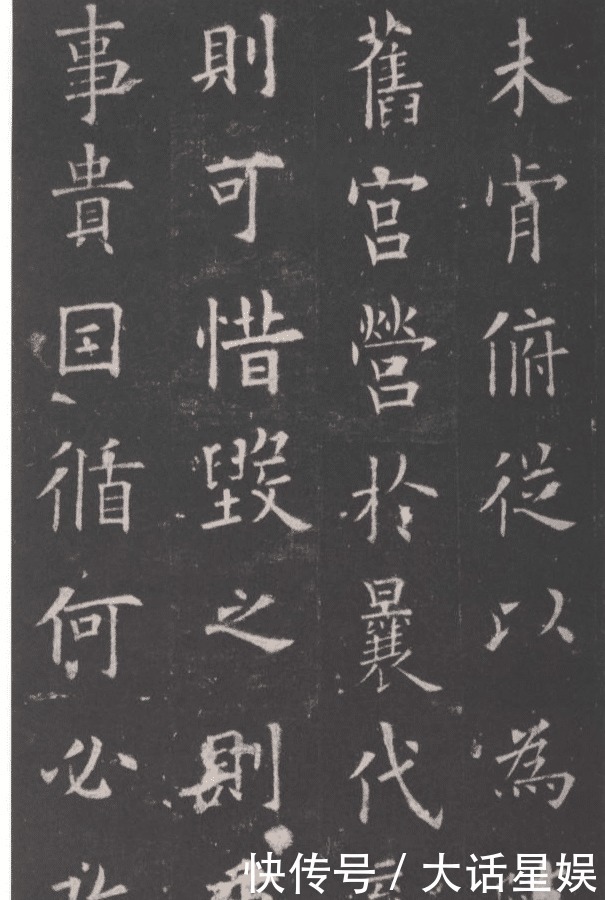 未肯俯從以為
舊宮營於曩代
則可惜毀之則
事貴因循何必
快传号 / 大话星娱